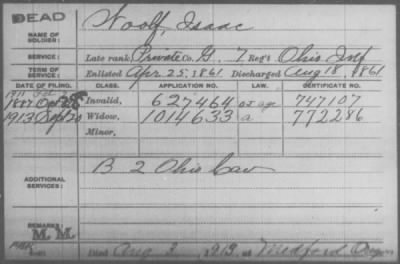 DEAD
Woolf, Isaac
NAME OF SOLDIER:
SERVICE: Late rank, Private Co. G, 7 Reg't Ohio Inf
TERM OF SERVICE: Enlisted Apr. 25, 1861 Discharged Aug 18, 1861
DATE OF FILING. CLASS. APPLICATION NO. LAW. CERTIFICATE NO.
1887 Invalid, 627464 747107
1913 Widow, 1014633 a 772286
Minor,
ADDITIONAL SERVICES: B 2 Ohio Cav
REMARKS:
M. M.
Died Aug 3, 1913, at Medford